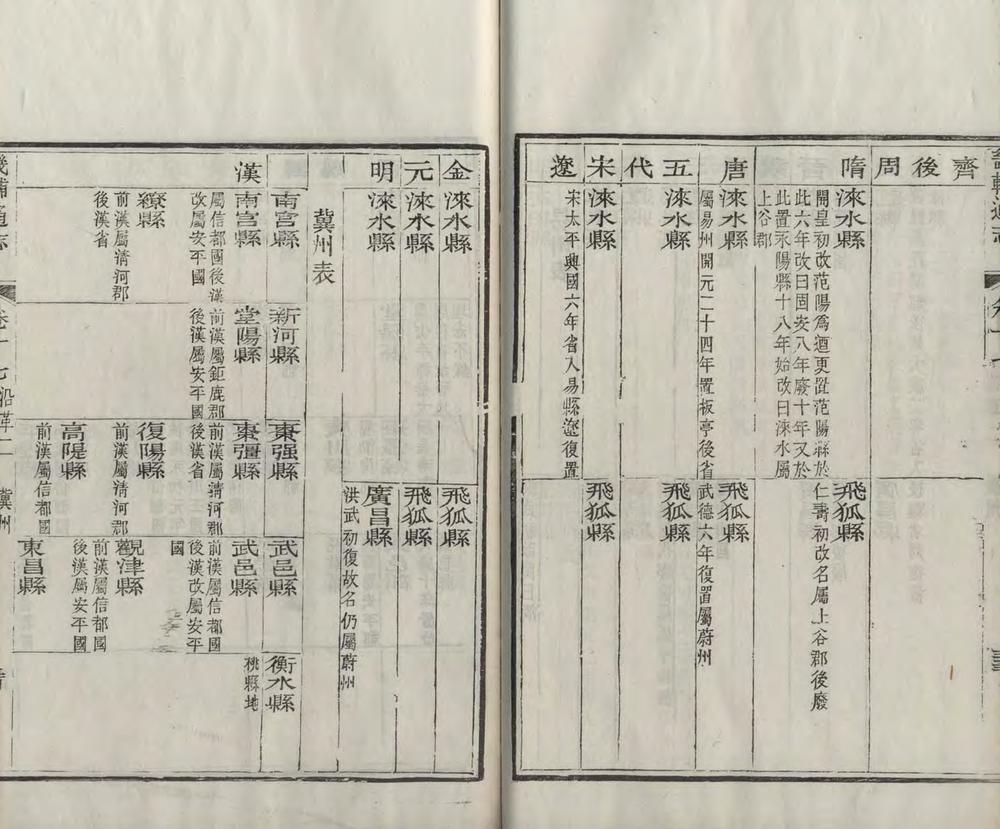 齊
後
周
隋
淶水縣
開皇初改范陽爲遒更趾范陽縣於
此六年改曰固安八年廢十年又於
此置永陽縣十八年始改曰淶水屬
上谷郡
飛狐縣
仁壽初改名屬上谷郡後廢
唐
淶水縣
屬易州開元二十四年置板亭後省
飛狐縣
武德六年復置屬蔚州
五
代
淶水縣
飛狐縣
宋
淶水縣
飛狐縣
遼
宋太平興國六年省入易縣遼復置
金
淶水縣
飛狐縣
元
淶水縣
飛狐縣
明
淶水縣
廣昌縣
洪武初復故名仍屬蔚州
冀州表
南宫縣
新河縣
棗强縣
武邑縣
衡水縣
漢
南宫縣
屬信都國後漢
改屬安平國
堂陽縣
前漢屬鉅鹿郡
後漢屬安平國
棗彊縣
前漢屬清河郡
後漢省
武邑縣
前漢屬信都國
後漢改屬安平
國
桃縣地
繚縣
前漢屬清河郡
後漢省
復陽縣
前漢屬清河郡
觀津縣
前漢屬信都國
後漢屬安平國
高隄縣
前漢屬信都國
東昌縣
畿輔通志
卷十七沿革二
冀州